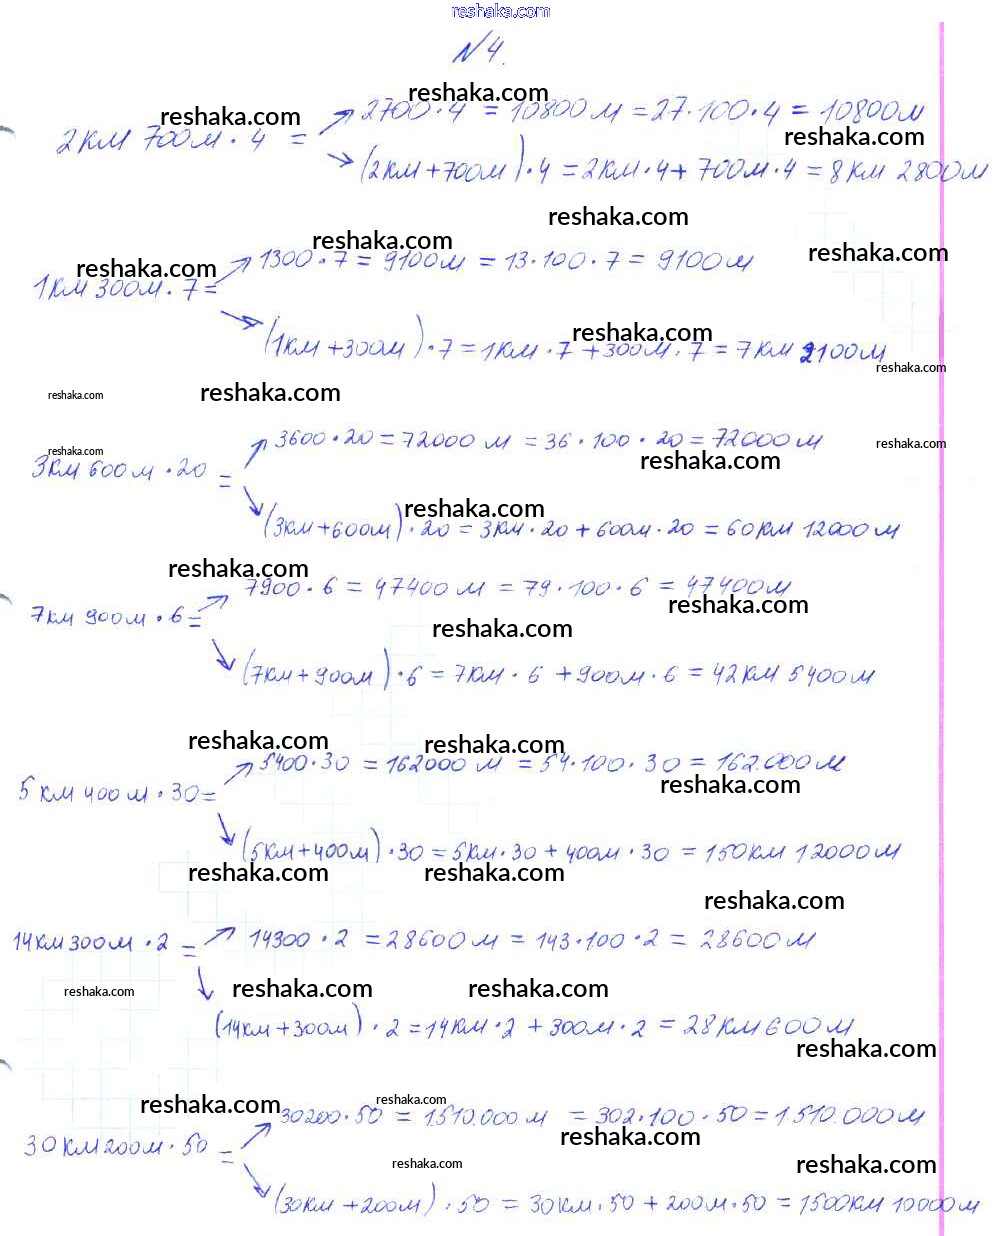 reshaka.com
N 4.
reshaka.com
reshaka.com
2700 · 4 = 10800 м = 27 · 100 · 4 = 10800 м
2 км 700 м · 4 =
reshaka.com
(2км + 700м) · 4 = 2км · 4 + 700м · 4 = 8 км 2800м
reshaka.com
reshaka.com
reshaka.com
reshaka.com
1300 · 7 = 9100м = 13 · 100 · 7 = 9100м
1км 300м · 7 =
reshaka.com
(1км + 300м) · 7 = 1км · 7 + 300м · 7 = 7 км 2100м
reshaka.com
reshaka.com
reshaka.com
3600 · 20 = 72000 м = 36 · 100 · 20 = 72000 м
reshaka.com
reshaka.com
reshaka.com
3км 600 м · 20 =
reshaka.com
(3км + 600м) · 20 = 3км · 20 + 600м · 20 = 60 км 12000 м
reshaka.com
7900 · 6 = 47400 м = 79 · 100 · 6 = 47400м
reshaka.com
7км 900м · 6 =
reshaka.com
(7км + 900м) · 6 = 7км · 6 + 900м · 6 = 42 км 5400 м
reshaka.com
reshaka.com
5400 · 30 = 162000 м = 54 · 100 · 30 = 162.000 м
reshaka.com
5 км 400 м · 30 =
(5км + 400м) · 30 = 5км · 30 + 400м · 30 = 150км 12000 м
reshaka.com
reshaka.com
reshaka.com
14км 300м · 2 =
14300 · 2 = 28600 м = 143 · 100 · 2 = 28600 м
reshaka.com
reshaka.com
reshaka.com
(14км + 300м) · 2 = 14км · 2 + 300м · 2 = 28 км 600 м
reshaka.com
reshaka.com
reshaka.com
30200 · 50 = 1.510.000 м = 302 · 100 · 50 = 1.510.000 м
reshaka.com
30 км 200м · 50 =
reshaka.com
reshaka.com
(30км + 200м) · 50 = 30км · 50 + 200м · 50 = 1500км 10000м